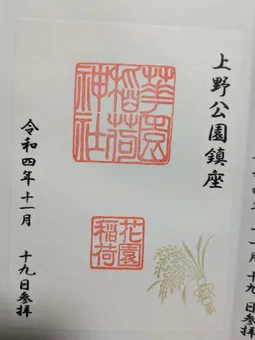 上野公園鎮座
華園
稲荷
神社
花園
稲荷
令和四年十一月 十九日参拝